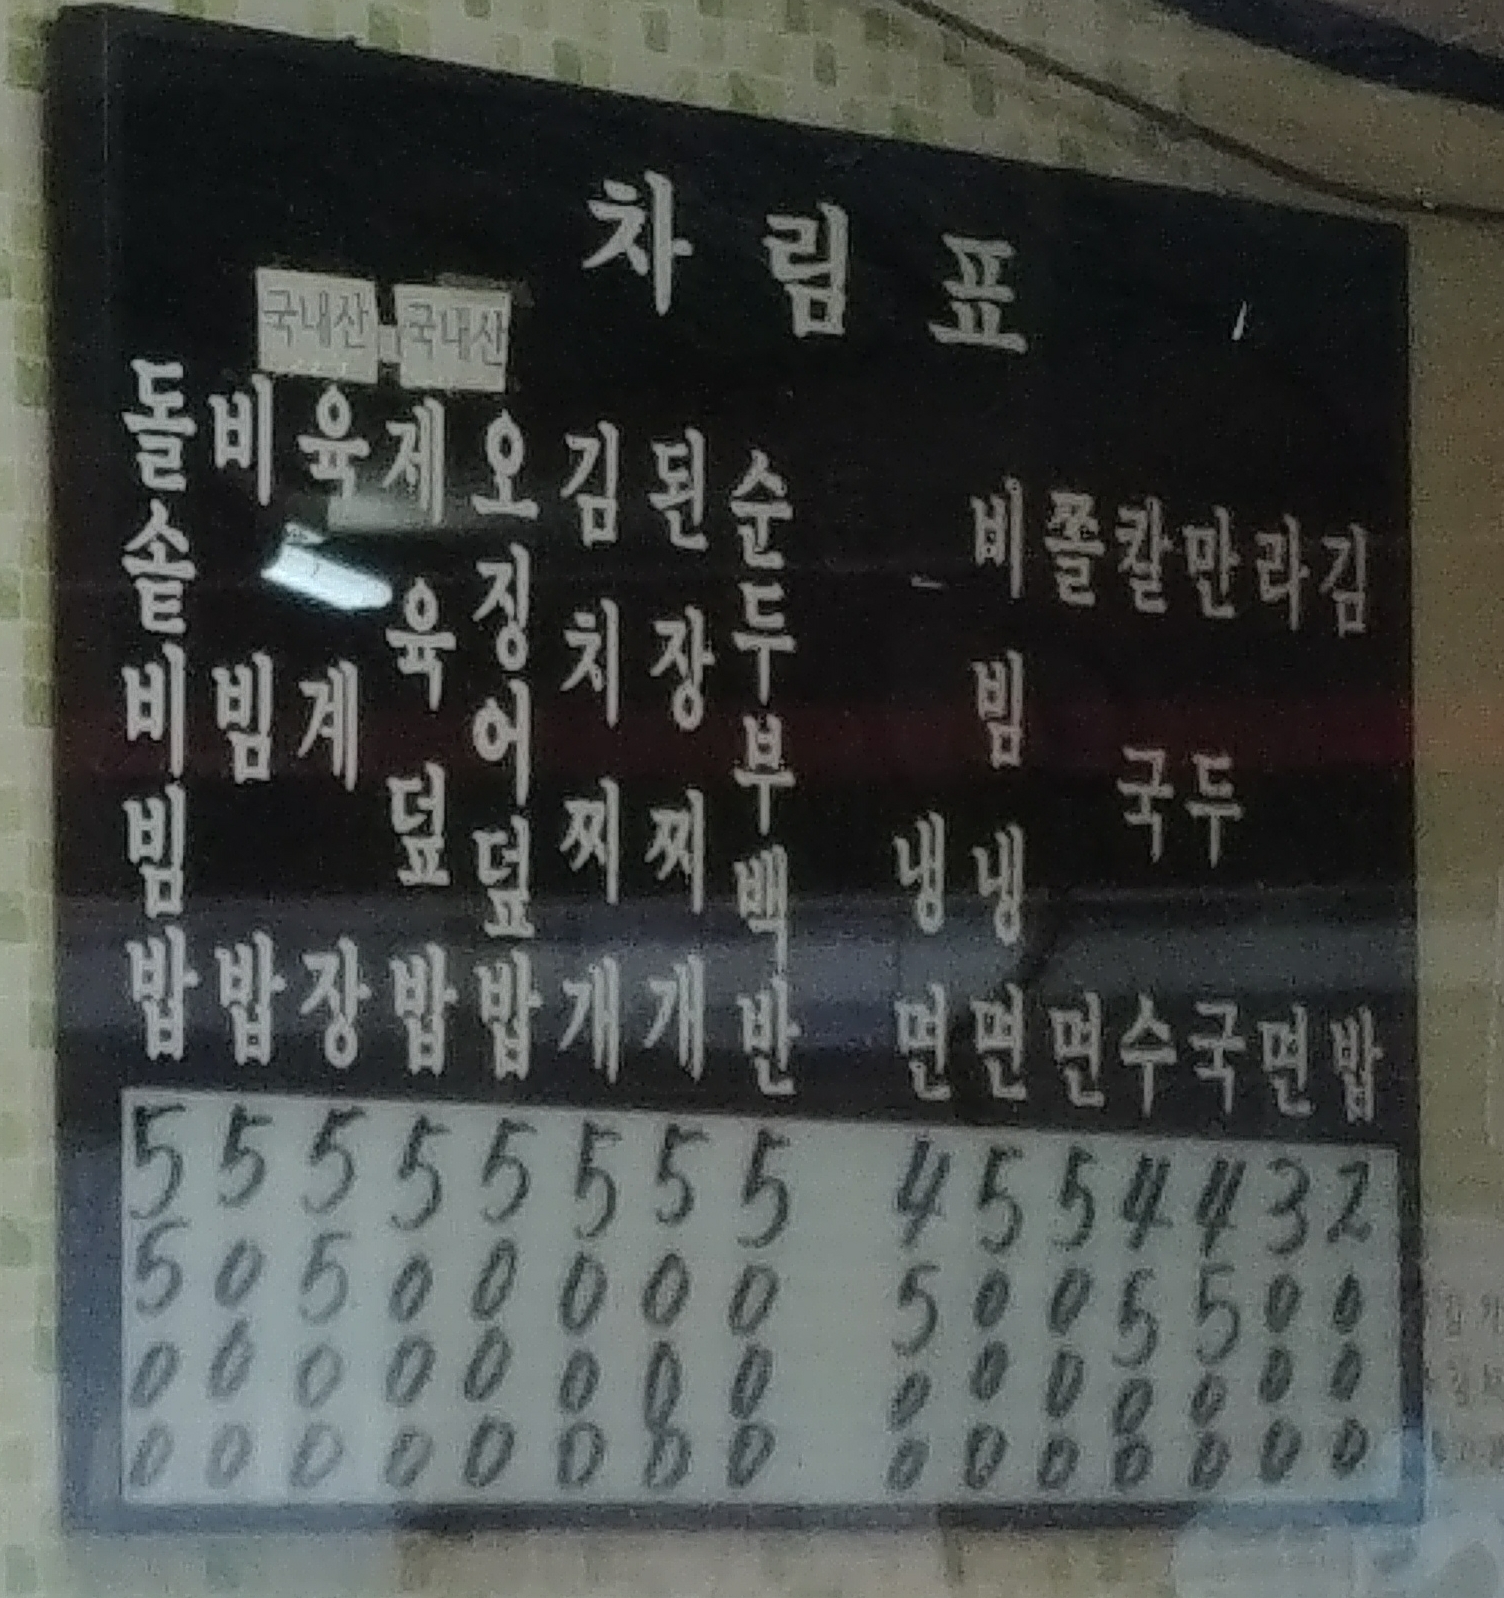 차림표
국내산 국내산
돌솥비빔밥 5500
비빔밥 5000
육계장 5500
제육덮밥 5000
오징어덮밥 5000
김치찌개 5000
된장찌개 5000
순두부백반 5000
냉면 4500
비빔냉면 5000
쫄면 5000
칼국수 4500
만두국 4500
라면 3000
김밥 2000